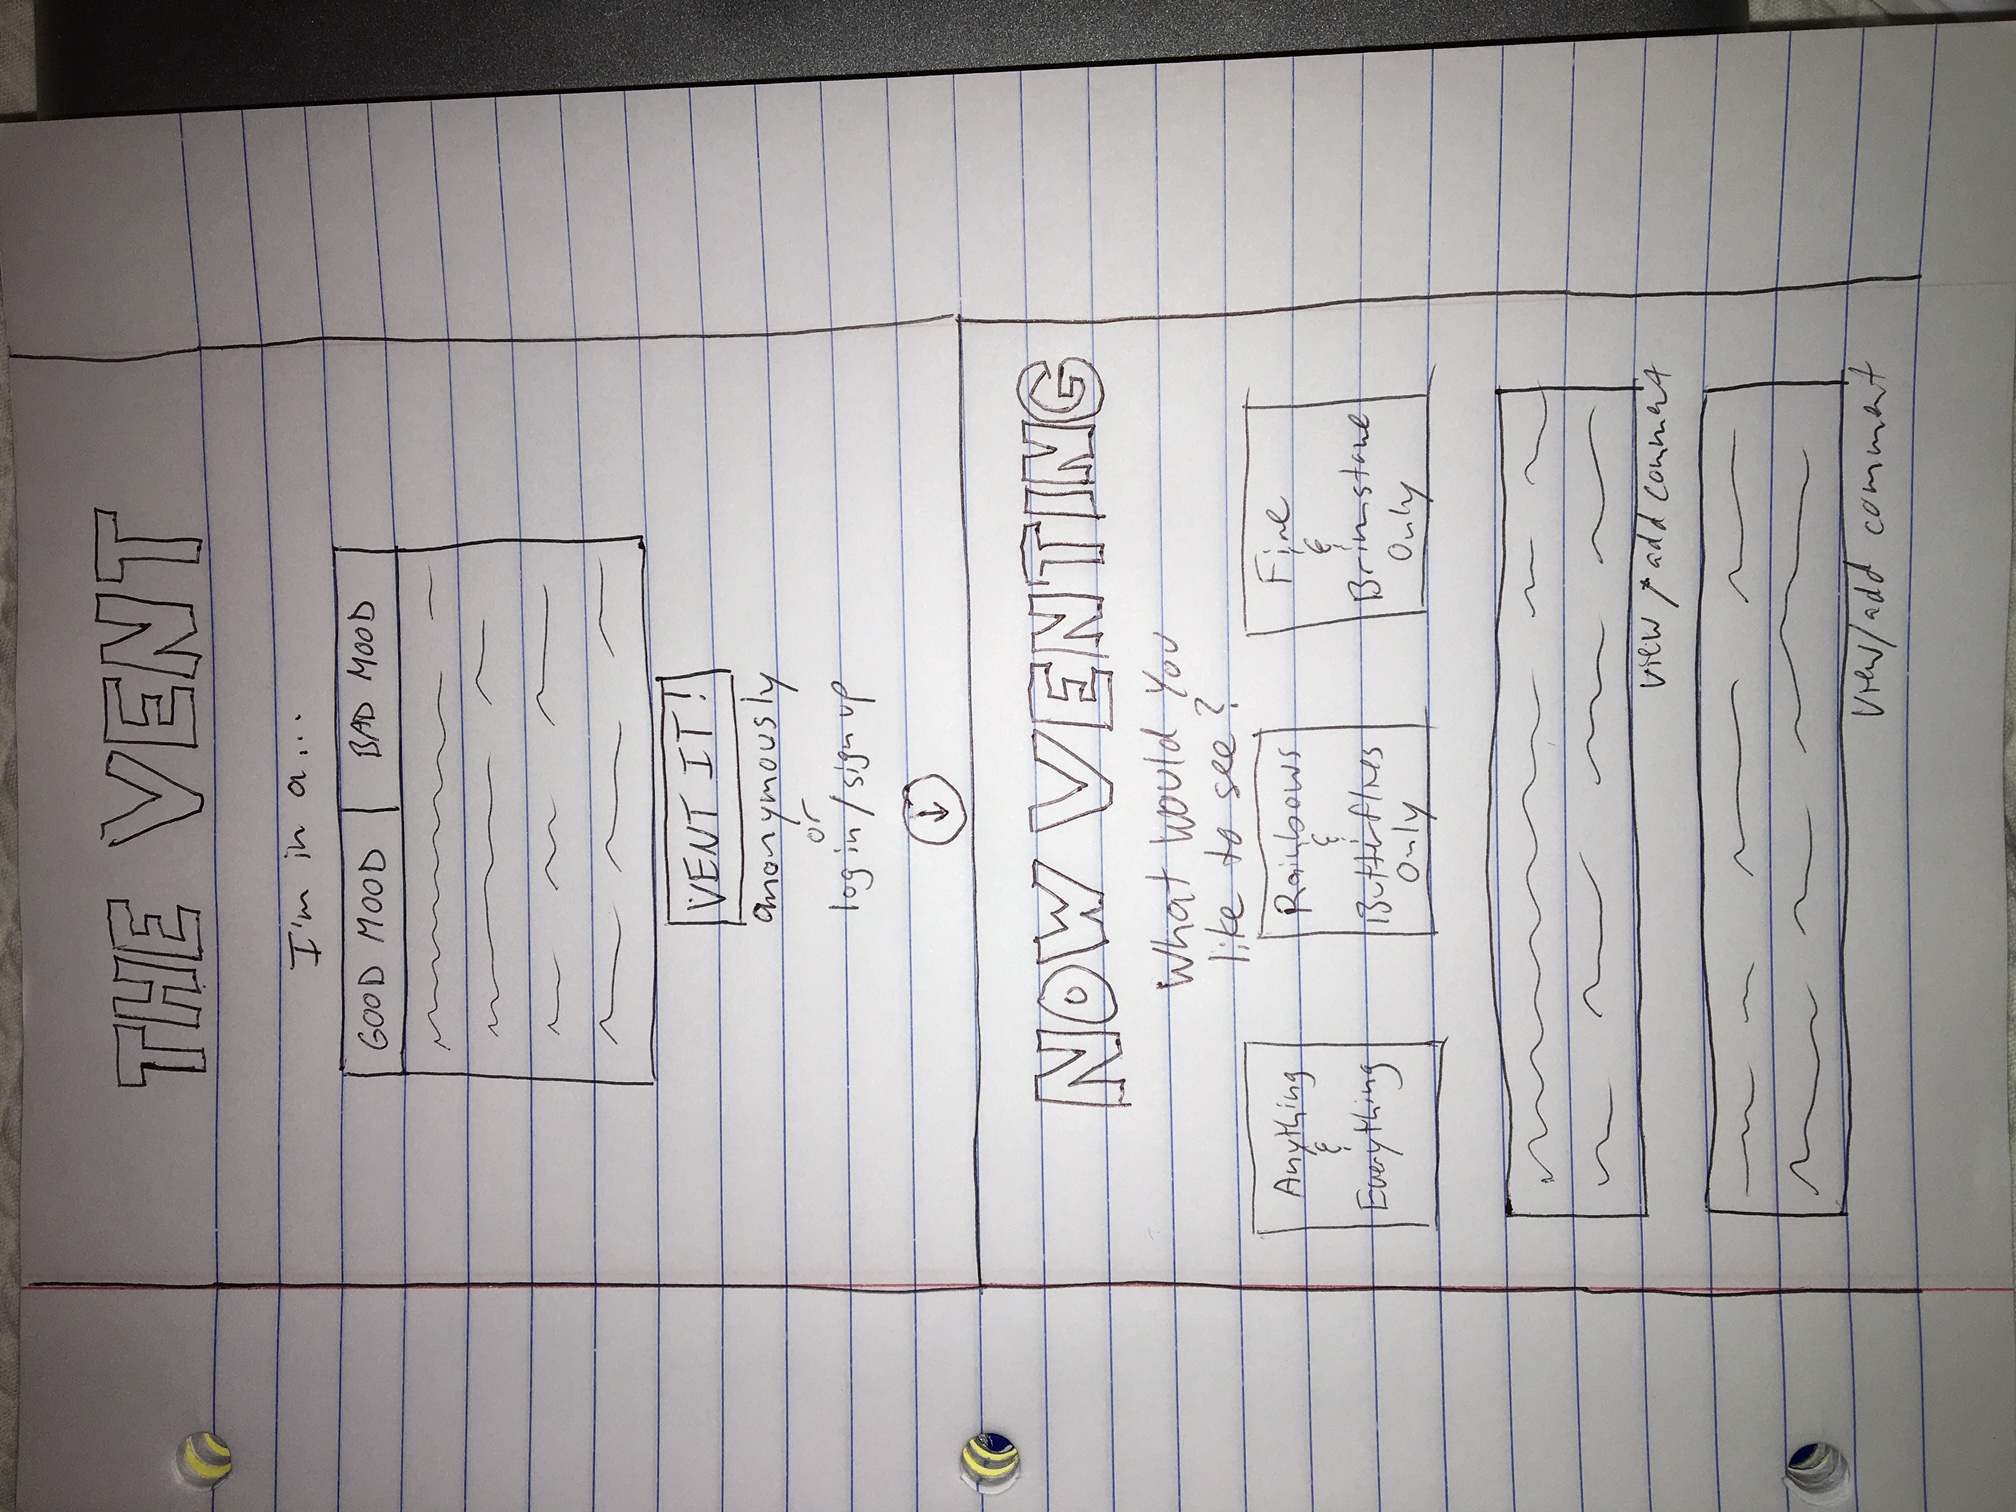 THE VENT
I'm in a...
GOOD MOOD BAD MOOD
VENT IT!
anonymously
or
log in / sign up
NOW VENTING
What would you
like to see?
Anything
&
Everything
Rainbows
&
Butterflies
Only
Fire
&
Brimstone
Only
view / add comment
view/add comment